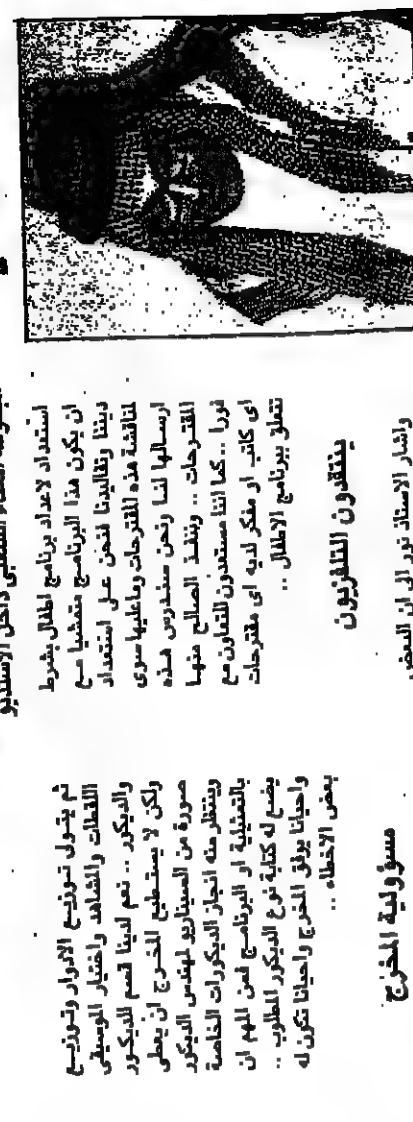 داخل الاستديو
استعداد لاعداد برنامج اطفال بشرط
ان يكون هذا البرنامج متمشيا مع
ديننا وتقاليدنا فنحن على استعداد
لمناقشة هذه المقترحات وماعليها سوى
ارسالها لنا ونحن سندرس هذه
المقترحات .. وينفذ الصالح منها
فورا .. كما اننا مستعدون للتعاون مع
اى كاتب او مفكر لديه اى مقترحات
تتعلق ببرنامج الاطفال ..
ينتقدون التلفزيون
واشار الاستاذ نور الى ان البعض
ثم يتولى توزيع الادوار وتوزيع
اللقطات والمشاهد واختيار الموسيقى
والديكور .. نعم لدينا قسم للديكور
ولكن لا يستطيع المخرج ان يعطى
صورة من السيناريو لمهندس الديكور
وينتظر منه انجاز الديكورات الخاصة
بالتمثيلية او البرنامج لمن المهم ان
يضع له كتابة نوع الديكور المطلوب ..
واحيانا يوفق المخرج واحيانا تكون له
بعض الاخطاء ..
مسؤولية المخرج